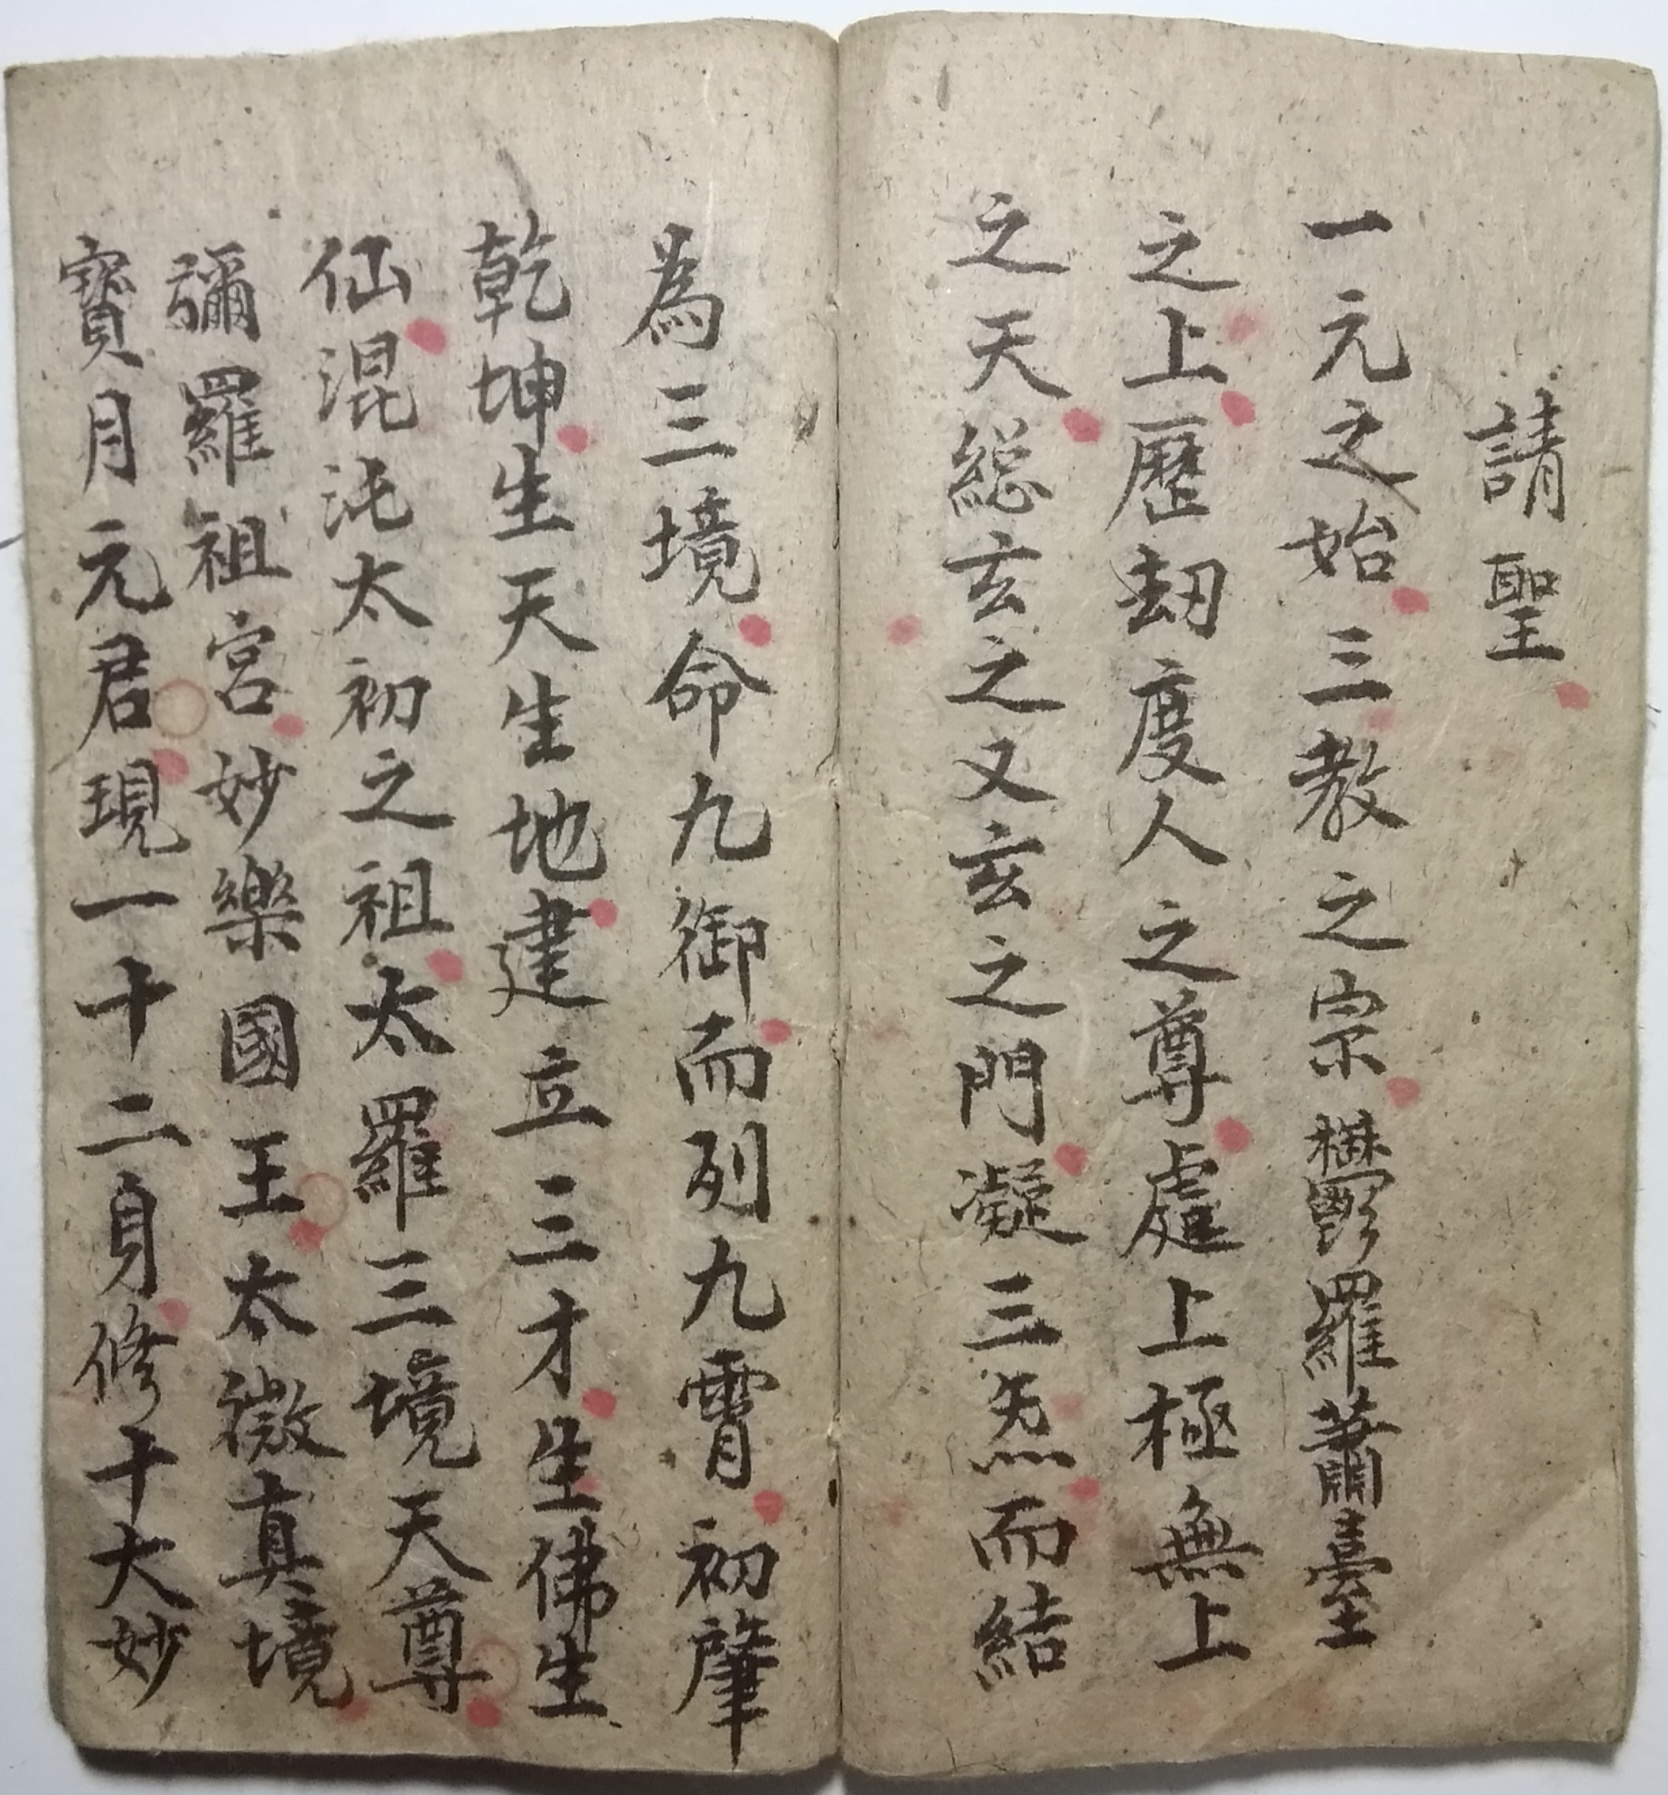 請聖
一元之始三教之宗鬱羅蕭臺
之上歷劫度人之尊處上極無上
之天総玄之又玄之門凝三炁而結
為三境命九御而列九霄初肇
乾坤生天生地建立三才生佛生
仙混沌太初之祖太羅三境天尊
彌羅祖宮妙樂國王太微真境
寶月元君現一十二身修十大妙